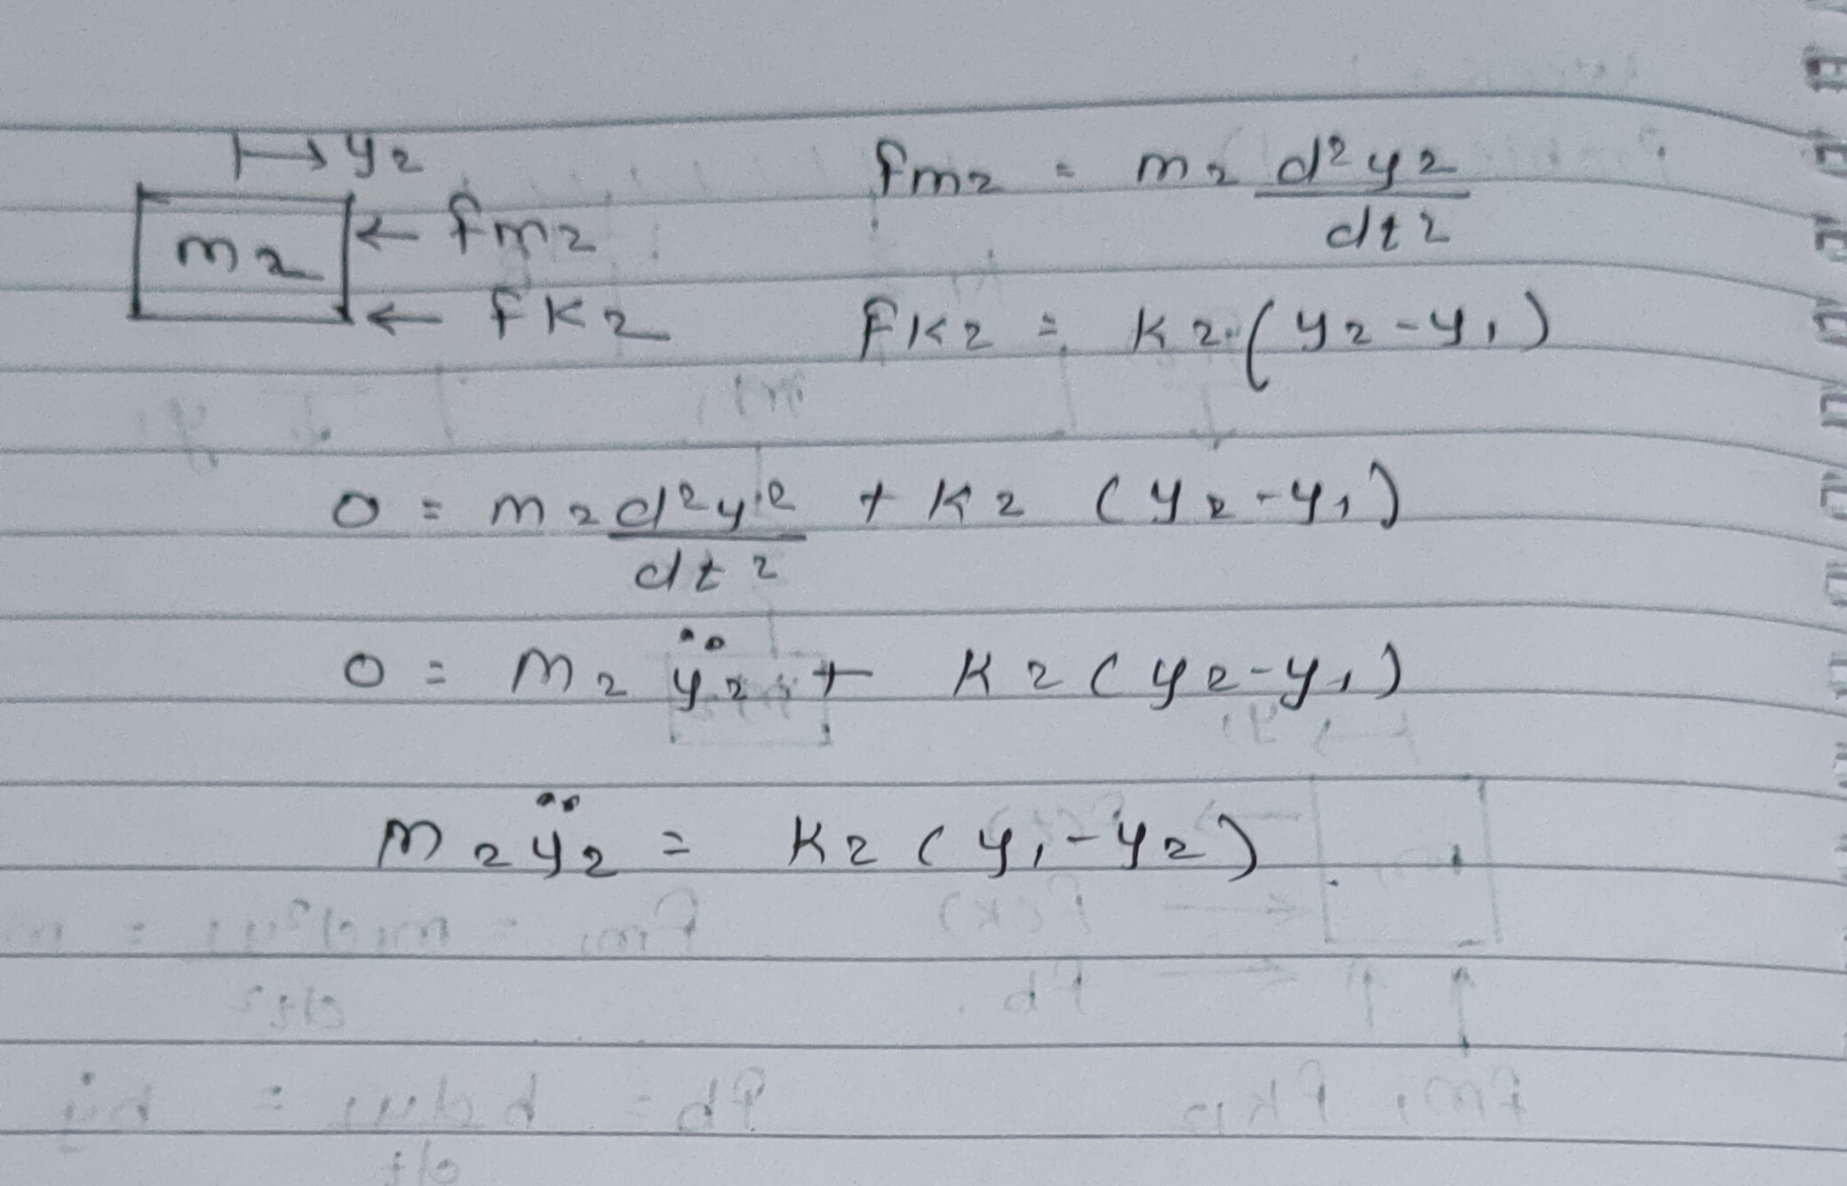 ↦ y2
m2 ← fm2 fm2 = m2 d²y2/dt²
← fK2 fK2 = K2 (y2-y1)
0 = m2 d²y2/dt² + K2 (y2-y1)
0 = m2 ÿ2 + K2 (y2-y1)
m2 ÿ2 = K2 (y1-y2)